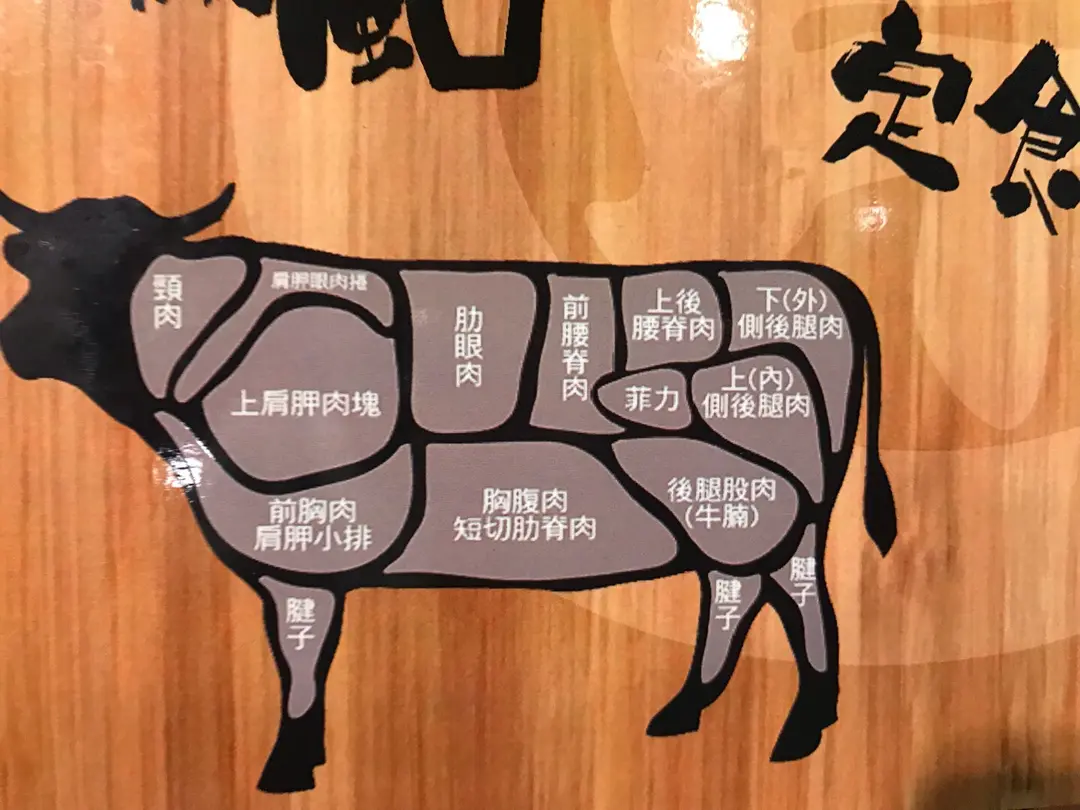 定食
頸肉
肩胛眼肉捲
肋眼肉
前腰脊肉
上後
腰脊肉
下(外)
側後腿肉
上肩胛肉塊
菲力
上(內)
側後腿肉
前胸肉
肩胛小排
胸腹肉
短切肋脊肉
後腿股肉
(牛腩)
腱子
腱子
腱子